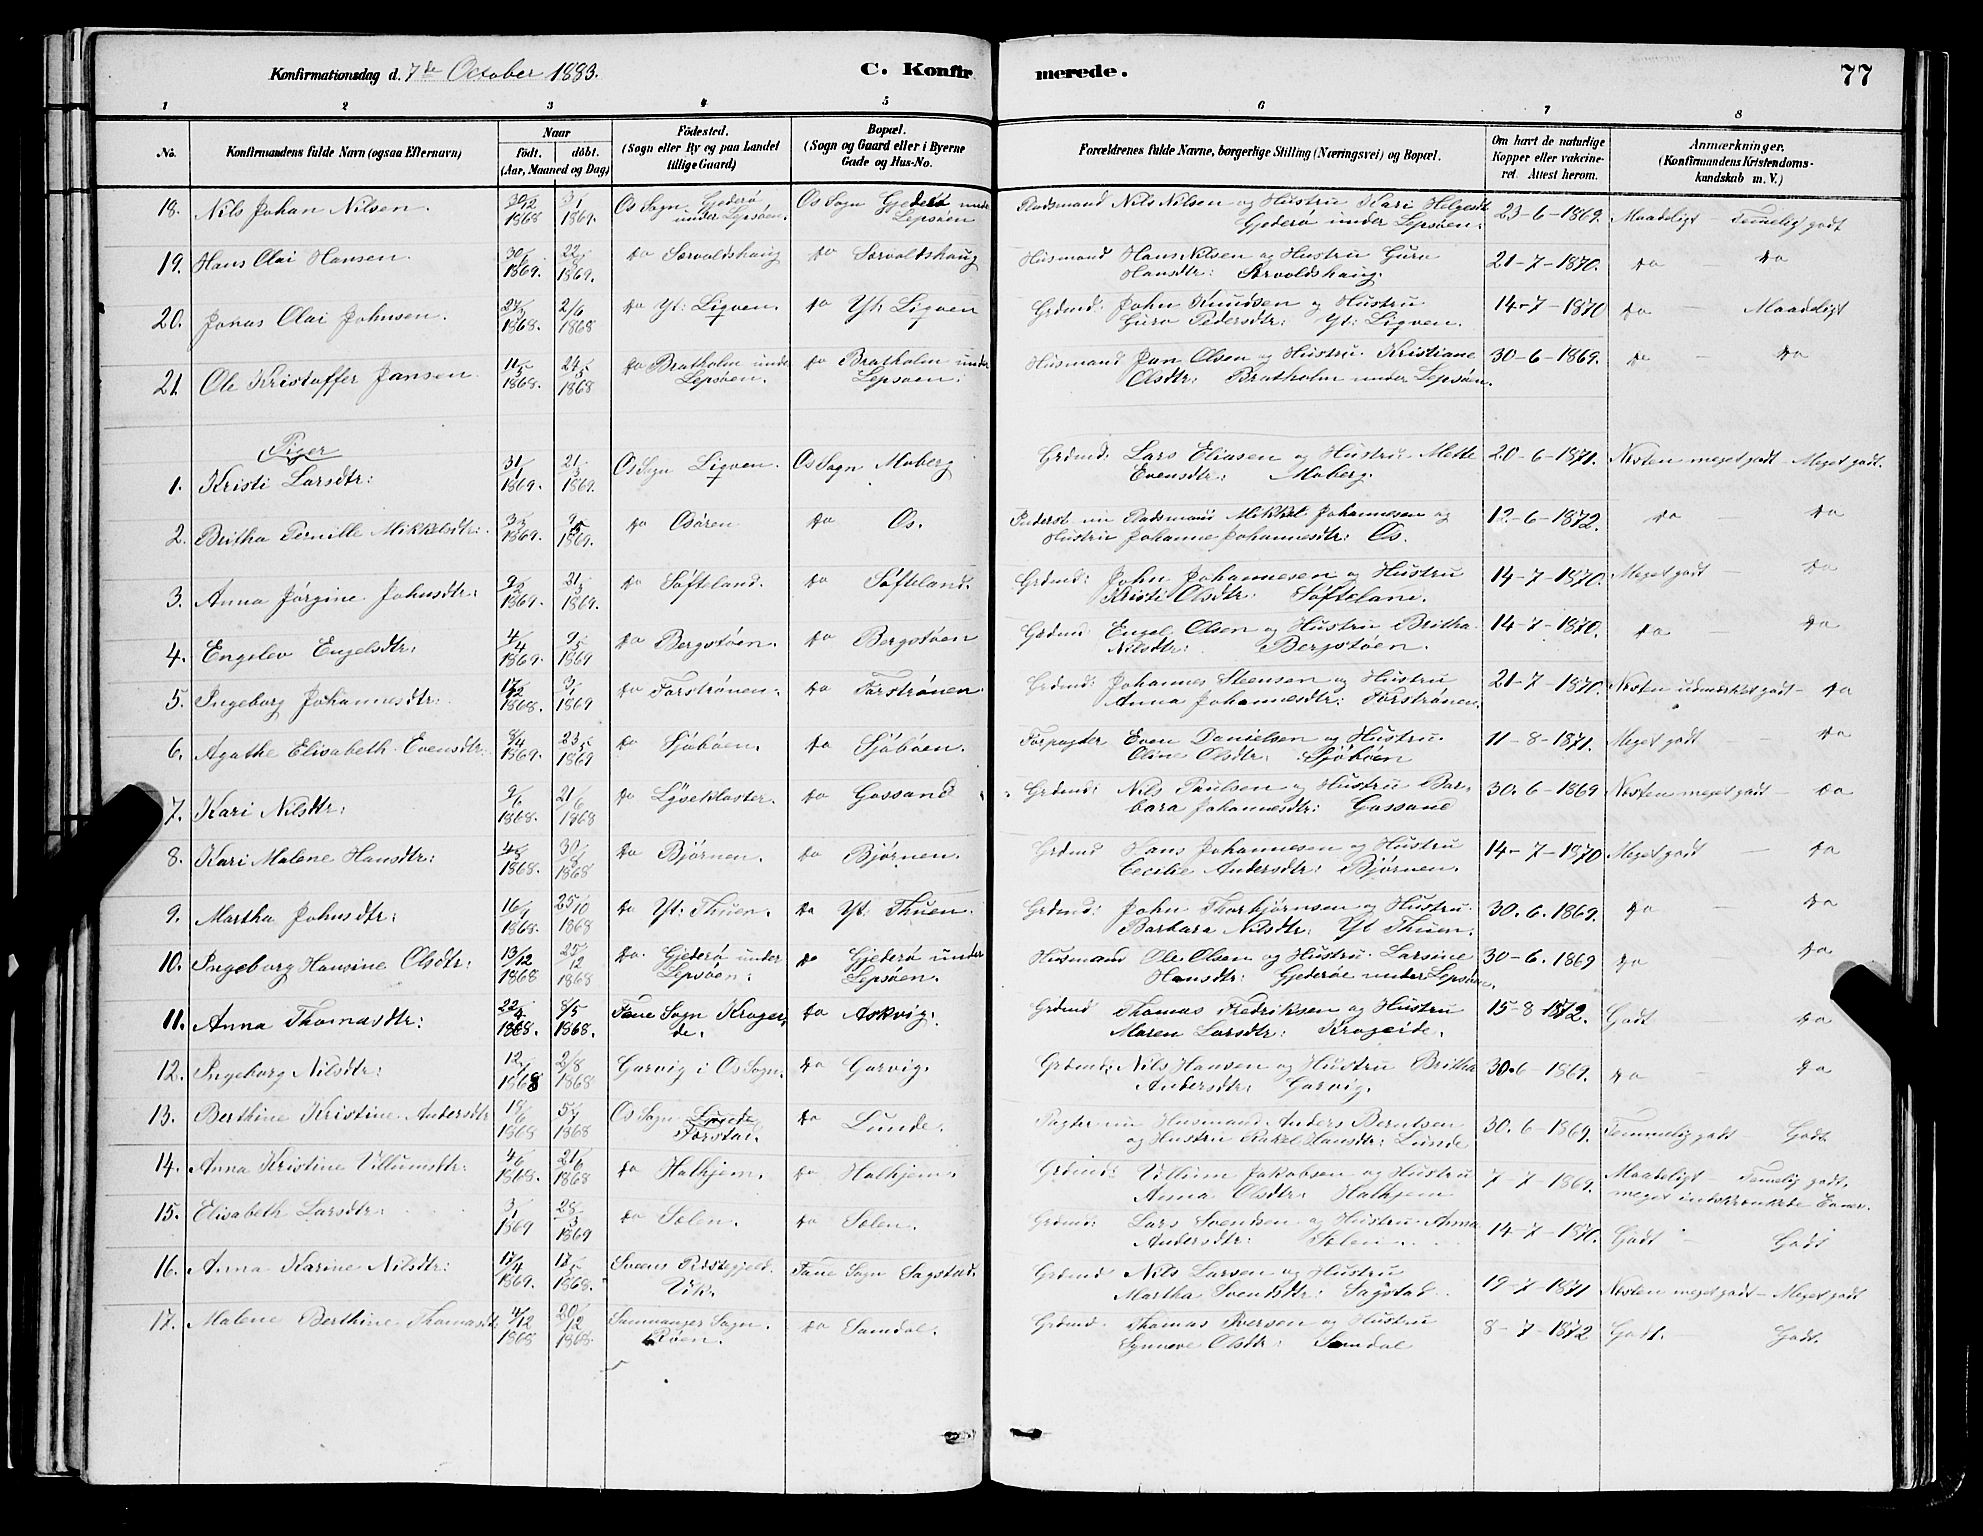 Konfirmationsdag d. 7de October 1883. C. Konfirmerede. 77
1 2 3 4 5 6 7 8
No. Konfirmandens fulde Navn (ogsaa Efternavn) Naar født, døbt. (Aar, Maaned og Dag) Fødested. (Sogn eller By og paa Landet tillige Gaard) Bopæl. (Sogn og Gaard eller i Byerne Gade og Hus-No. Forældrenes fulde Navne, borgerlige Stilling (Næringsvei) og Bopæl. Om havt de naturlige Kopper eller vakcineret. Attest herom. Anmærkninger. (Konfirmandens Kristendomskundskab m. V.)
18. Nils Johan Nilsen. 30/12 1868 3/1 1869. Os Sogn Gjederø under Lepsøen. Os Sogn Gjederø under Lepsøen Nils Nilsen og Hustru Kari Helgesdtr Gjederø under Lepsøen. 23-6-1869. Maadeligt – Temelig godt
19. Hans Olai Hansen. 1869. 1869. Do Sørvoldshaug Do Sørvoldshaug Husmand Hans Nilsen og Hustru Guro Hansdtr: Sørvoldshaug. 21-7-1870. Do – Do
20. Jonas Olai Johnsen. 1868. 2/6 1868 Do Yt: Ligven. Do Yt. Ligven Grdmd: John Knudsen og Hustru Guro Pedersdtr: Yt: Ligven. 14-7-1870 Do – Maadeligt
21. Ole Kristoffer Jansen 1868. 24/5 1868 Do Bratholm under Lepsøen. Do Bratholm under Lepsøen. Husmand Jan Olsen og Hustru Kristiane Olsdtr: Bratholm under Lepsøen. 30-6-1869. Do – Do
Piger
1. Kristi Larsdtr: 31/1 1869. 21/3 1869. Os Sogn Ligven. Os Sogn Moberg Grdmd: Lars Eliasen og Hustru Mette Evensdtr: Moberg. 20-6-1871. Næsten meget godt – Meget godt.
2. Britha Pernille Mikkelsdtr: 1869. 1869. Do Osøren Do Os. Inderst Mikkel Johannesen og Hustru Johanne Johannesdtr: Os. 12-6-1872. Do Do
3. Anna Jørgine Johnsdtr: 9/2 1869. 21/3 1869. Do Søfteland. Do Søfteland. Grdmd: John Johannesen og Hustru Kristi Olsdtr. Søfteland. 14-7-1870. Meget godt – Do
4. Engelev Engelsdtr: 4/4 1869. 9/5 1869 Do Bergstøen. Do Bergstøen Grdmd: Engel Olsen og Hustru Britha Nilsdtr: Bergstøen. 14-7-1870. Do Do
5. Ingeborg Johannesdtr: 17/12 1868. 3/1 1869 Do Forstrønen. Do Forstrønen. Grdmd: Johannes Steensen og Hustru Anna Johannesdtr: Forstrønen. 21-7-1870. Næsten udmærket godt – Do
6. Agathe Elisabeth Evensdtr. 8/4 1869. 23/5 1869 Do Sjøbøen. Do Sjøbøen. Forpagter Even Danielsen og Hustru Oline Olsdtr: Sjøbøen 11-8-1871. Meget godt – Do
7. Kari Nilsdtr: 9/6 1868. 21/6 1868 Do Lysekloster. Do Gassand Grdmd: Nils Paulsen og Hustru Barbara Johannesdtr: Gassand 30-6-1869 Næsten meget godt – Do
8. Kari Malene Hansdtr: 1868. 30/8 1868 Do Bjørnen. Do Bjørnen. Grdmd Hans Johannesen og Hustru Cecilie Andersdtr: Bjørnen. 14-7-1870 Meget godt – Do
9. Martha Johnsdtr: 1868. 25/10 1868 Do Yt: Thuen. Do Yt. Thuen. Grdmd: John Thorbjørnsen og Hustru Barbara Nilsdtr: Yt Thuen. 30.6.1869. Do – Do
10. Ingeborg Hansine Olsdtr: 13/12 1868 25/12 1868 Do Gjederø under Lepsøen: Do Gjederø under Lepsøen. Husmand Ole Olsen og Hustru Larsine Hansdtr: Gjederøe under Lepsøen. 30-6.1869 Do Do
11. Anna Thomasdtr: 22/4 1868. 8/5 1868. Fane Sogn Krogeide. Do Askvig. Grdmd Thomas Fredriksen og Hustru Maren Larsdtr: Krogeide. 15-8-1872. Godt Do
12. Ingeborg Nilsdtr: 12/7 1868 2/8 1868 Garvig i Os Sogn. Do Garvig. Grdmd: Nils Hansen og Hustru Britha Andersdtr: Garvig. 30.6-1869. Do – Do
13. Berthine Kristine Andersdtr 1868 5/7 1868 Os Sogn Lunde Forstad. Do Lunde. Husmand Anders Berntsen og Hustru Rakel Hansdtr: Lunde. 30.6-1869. Temmelig godt – Godt.
14. Anna Kristine Villumsdtr: 4/6 1868. 21/6 1868 Do Halhjem. Do Halhjem. Grdmd: Villum Jakobsen og Hustru Anna Olsdtr: Halhjem 7-7-1869. Maadeligt – Temelig godt, meget indskrænkede Evner.
15. Elisabeth Larsdtr: 3/1 1869 28/3 1869 Do Sølen. Do Sølen. Grdmd: Lars Svendsen og Hustru Anna Andersdtr: Sølen. 14-7-1870. Godt – Godt
16. Anna Karine Nilsdtr: 17/4 1869. 1868. Svens Præstegjeld. Vik. Fane Sogn Sagstad. Grdmd Nils Larsen og Hustru Martha Svendsdtr: Sagstad. 19-7-1871 Næsten meget godt – Meget godt
17. Malene Berthine Thomasdtr 4/12 1868 20/12 1868. Samnanger Sogn. Røen. Do Samdal. Grdmd. Thomas Iversen og Hustru Synneve Olsdtr: Samdal 8-7-1872 Godt. – Godt.